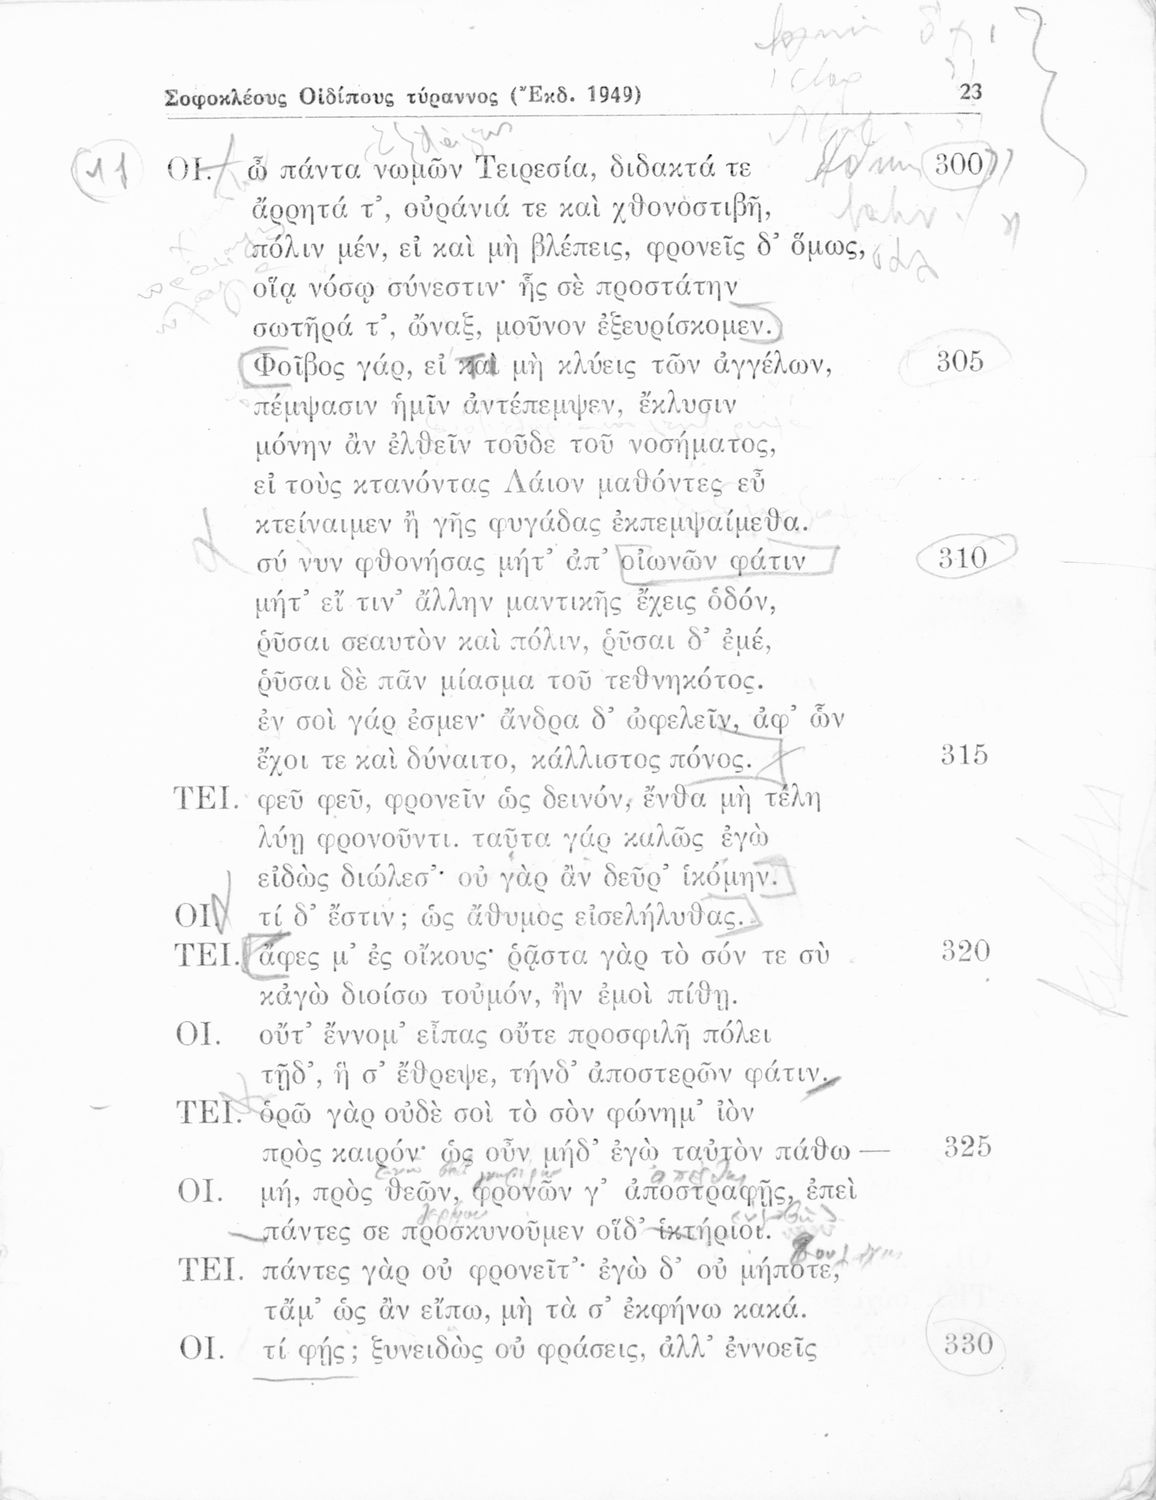 Σοφοκλέους Οἰδίπους τύραννος (Ἔκδ. 1949) 23
11
ΟΙ. ὦ πάντα νωμῶν Τειρεσία, διδακτά τε 300
ἄρρητά τ᾽, οὐράνιά τε καὶ χθονοστιβῆ,
πόλιν μέν, εἰ καὶ μὴ βλέπεις, φρονεῖς δ᾽ ὅμως,
οἵᾳ νόσῳ σύνεστιν· ἧς σὲ προστάτην
σωτῆρά τ᾽, ὦναξ, μοῦνον ἐξευρίσκομεν.
Φοῖβος γάρ, εἰ καὶ μὴ κλύεις τῶν ἀγγέλων, 305
πέμψασιν ἡμῖν ἀντέπεμψεν, ἔκλυσιν
μόνην ἂν ἐλθεῖν τοῦδε τοῦ νοσήματος,
εἰ τοὺς κτανόντας Λάιον μαθόντες εὖ
κτείναιμεν ἢ γῆς φυγάδας ἐκπεμψαίμεθα.
σύ νυν φθονήσας μήτ᾽ ἀπ᾽ οἰωνῶν φάτιν 310
μήτ᾽ εἴ τιν᾽ ἄλλην μαντικῆς ἔχεις ὁδόν,
ῥῦσαι σεαυτὸν καὶ πόλιν, ῥῦσαι δ᾽ ἐμέ,
ῥῦσαι δὲ πᾶν μίασμα τοῦ τεθνηκότος.
ἐν σοὶ γάρ ἐσμεν· ἄνδρα δ᾽ ὠφελεῖν, ἀφ᾽ ὧν
ἔχοι τε καὶ δύναιτο, κάλλιστος πόνος. 315
ΤΕΙ. φεῦ φεῦ, φρονεῖν ὡς δεινόν, ἔνθα μὴ τέλη
λύῃ φρονοῦντι. ταῦτα γάρ καλῶς ἐγὼ
εἰδὼς διώλεσ᾽· οὐ γὰρ ἂν δεῦρ᾽ ἱκόμην.
ΟΙ. τί δ᾽ ἔστιν; ὡς ἄθυμος εἰσελήλυθας.
ΤΕΙ. ἄφες μ᾽ ἐς οἴκους· ῥᾷστα γὰρ τὸ σόν τε σὺ 320
κἀγὼ διοίσω τοὐμόν, ἢν ἐμοὶ πίθῃ.
ΟΙ. οὔτ᾽ ἔννομ᾽ εἶπας οὔτε προσφιλῆ πόλει
τῇδ᾽, ἥ σ᾽ ἔθρεψε, τήνδ᾽ ἀποστερῶν φάτιν.
ΤΕΙ. ὁρῶ γὰρ οὐδὲ σοὶ τὸ σὸν φώνημ᾽ ἰὸν
πρὸς καιρόν· ὡς οὖν μήδ᾽ ἐγὼ ταὐτὸν πάθω — 325
ΟΙ. μή, πρὸς θεῶν, φρονῶν γ᾽ ἀποστραφῇς, ἐπεὶ
πάντες σε προσκυνοῦμεν οἵδ᾽ ἱκτήριοι.
ΤΕΙ. πάντες γὰρ οὐ φρονεῖτ᾽· ἐγὼ δ᾽ οὐ μήποτε,
τἄμ᾽ ὡς ἂν εἴπω, μὴ τὰ σ᾽ ἐκφήνω κακά.
ΟΙ. τί φῄς; ξυνειδὼς οὐ φράσεις, ἀλλ᾽ ἐννοεῖς 330